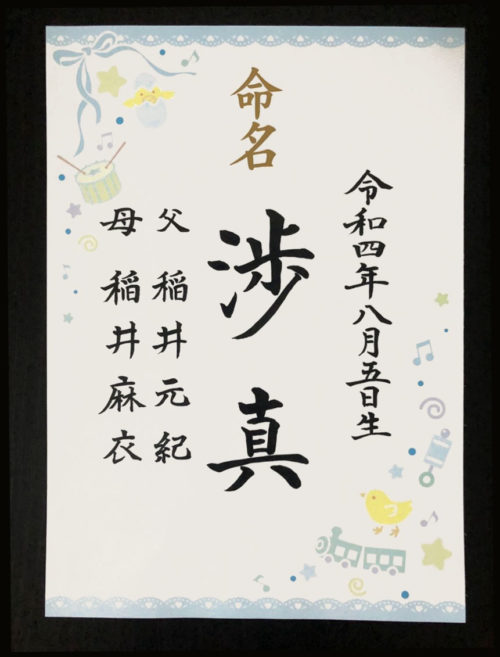 命名
令和四年八月五日生
渉真
父 稲井元紀
母 稲井麻衣